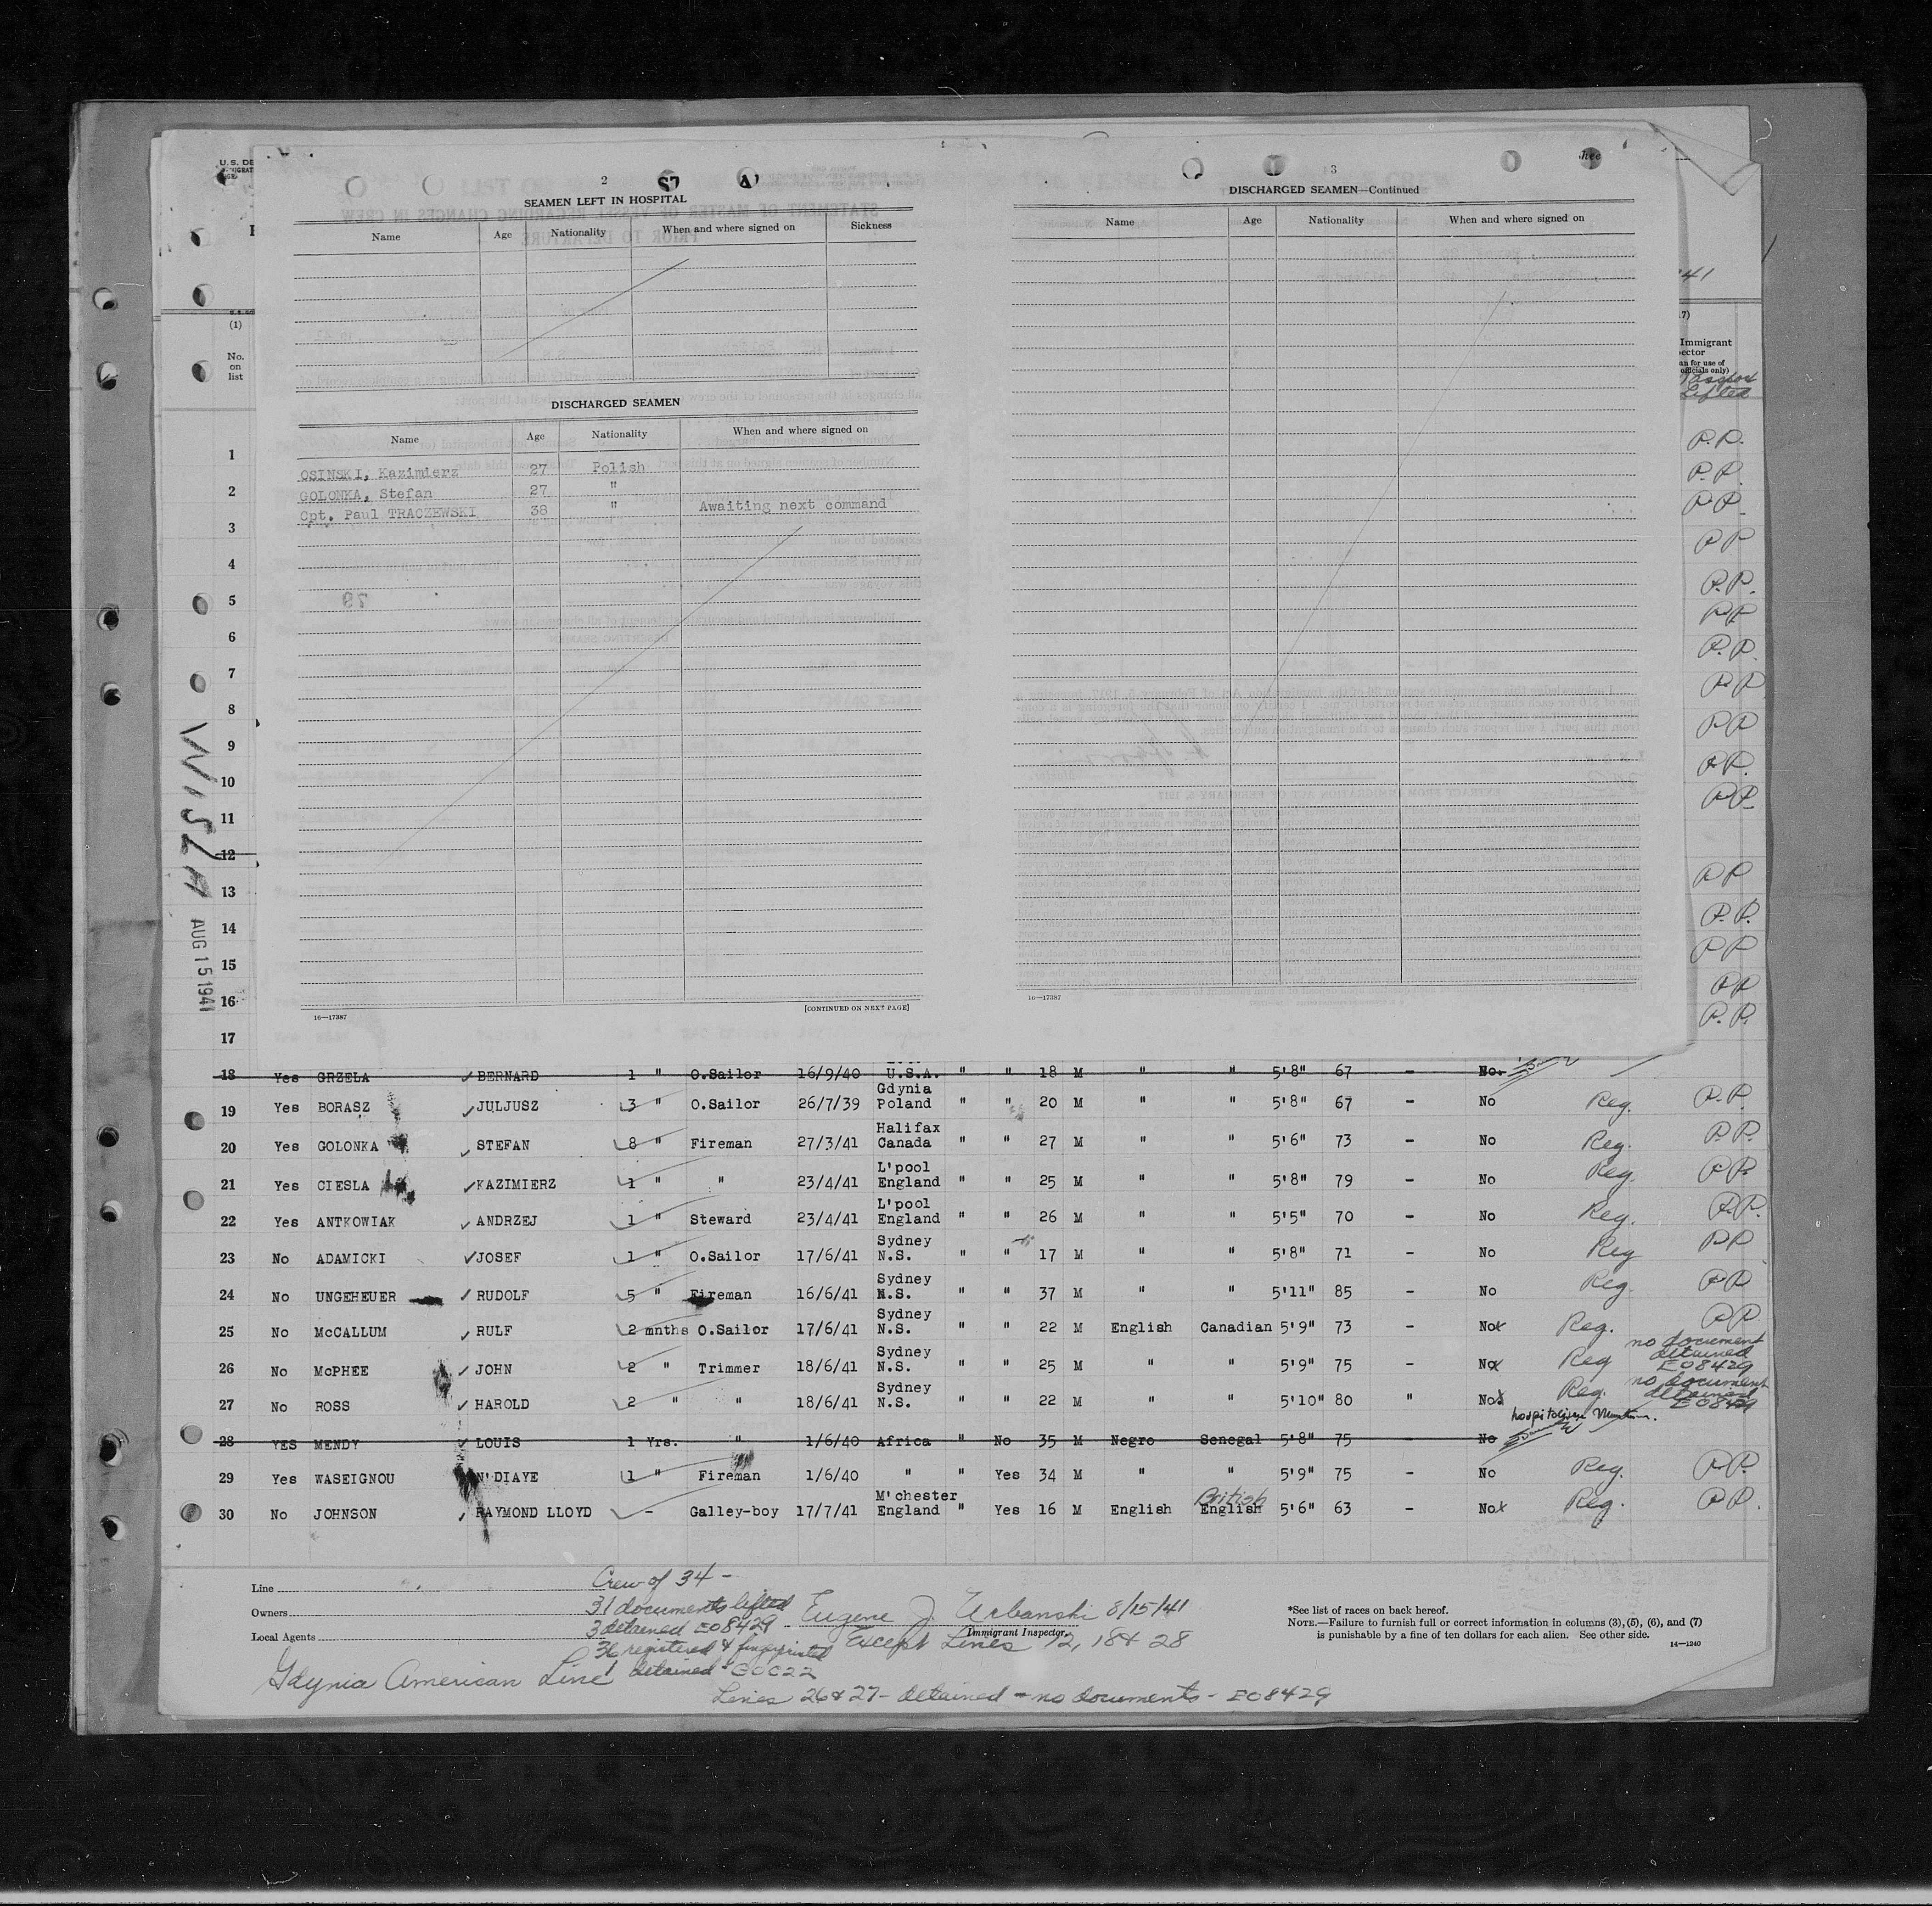 U. S. DE
2
SEAMEN LEFT IN HOSPITAL
Name Age Nationality When and where signed on Sickness
DISCHARGED SEAMEN
Name Age Nationality When and where signed on
OSINSKI, Kazimierz 27 Polish
GOLONKA, Stefan 27 "
Cpt. Paul TRACZEWSKI 38 " Awaiting next command
16—17387 [CONTINUED ON NEXT PAGE]
3
DISCHARGED SEAMEN—Continued
Name Age Nationality When and where signed on
16—17387
41
(1)
No. on list
Immigrant
officials only)
Lifted
1 P.P.
2 P.P.
3 P.P.
4 P.P.
5 P.P.
6 P.P.
7 P.P.
8 P.P.
9 P.P.
10 P.P.
11 P.P.
12
13 P.P.
14 P.P.
15 P.P.
16 P.P.
17 P.P.
WISLA
AUG 15 1941
18 Yes GRZELA BERNARD 1 " O.Sailor 16/9/40 U.S.A. " " 18 M " " 5'8" 67 - No.
19 Yes BORASZ JULJUSZ 3 " O.Sailor 26/7/39 Gdynia Poland " " 20 M " " 5'8" 67 - No Reg. P.P.
20 Yes GOLONKA STEFAN 8 " Fireman 27/3/41 Halifax Canada " " 27 M " " 5'6" 73 - No Reg. P.P.
21 Yes CIESLA KAZIMIERZ 1 " " 23/4/41 L'pool England " " 25 M " " 5'8" 79 - No Reg. P.P.
22 Yes ANTKOWIAK ANDRZEJ 1 " Steward 23/4/41 L'pool England " " 26 M " " 5'5" 70 - No Reg. P.P.
23 No ADAMICKI JOSEF 1 " O.Sailor 17/6/41 Sydney N.S. " " 17 M " " 5'8" 71 - No Reg P.P
24 No UNGEHEUER RUDOLF 5 " Fireman 16/6/41 Sydney N.S. " " 37 M " " 5'11" 85 - No Reg. P.P
25 No McCALLUM RULF 2 mnths O.Sailor 17/6/41 Sydney N.S. " " 22 M English Canadian 5'9" 73 - Nox Reg. P.P.
26 No McPHEE JOHN 2 " Trimmer 18/6/41 Sydney N.S. " " 25 M " " 5'9" 75 - Nox Reg no document detained E08429
27 No ROSS HAROLD 2 " " 18/6/41 Sydney N.S. " " 22 M " " 5'10" 80 " Nox Reg. no document detained E08429
28 YES MENDY LOUIS 1 Yrs. " 1/6/40 Africa " No 35 M Negro Senegal 5'8" 75 - No
29 Yes WASEIGNOU N'DIAYE 1 " Fireman 1/6/40 " " Yes 34 M " " 5'9" 75 - No Reg. P.P.
30 No JOHNSON RAYMOND LLOYD - Galley-boy 17/7/41 M'chester England " Yes 16 M English British English 5'6" 63 - Nox Reg. P.P.
Line
Owners
Local Agents
Crew of 34 -
31 documents lifted
3 detained E08429
registered & fingerprinted
1 detained
Gdynia American Line
Eugene J. Urbanski 8/15/41
Immigrant Inspector.
Except Lines 12, 18 & 28
Lines 26 & 27 - detained - no documents - E08429
*See list of races on back hereof.
NOTE.—Failure to furnish full or correct information in columns (3), (5), (6), and (7)
is punishable by a fine of ten dollars for each alien. See other side.
14—1240